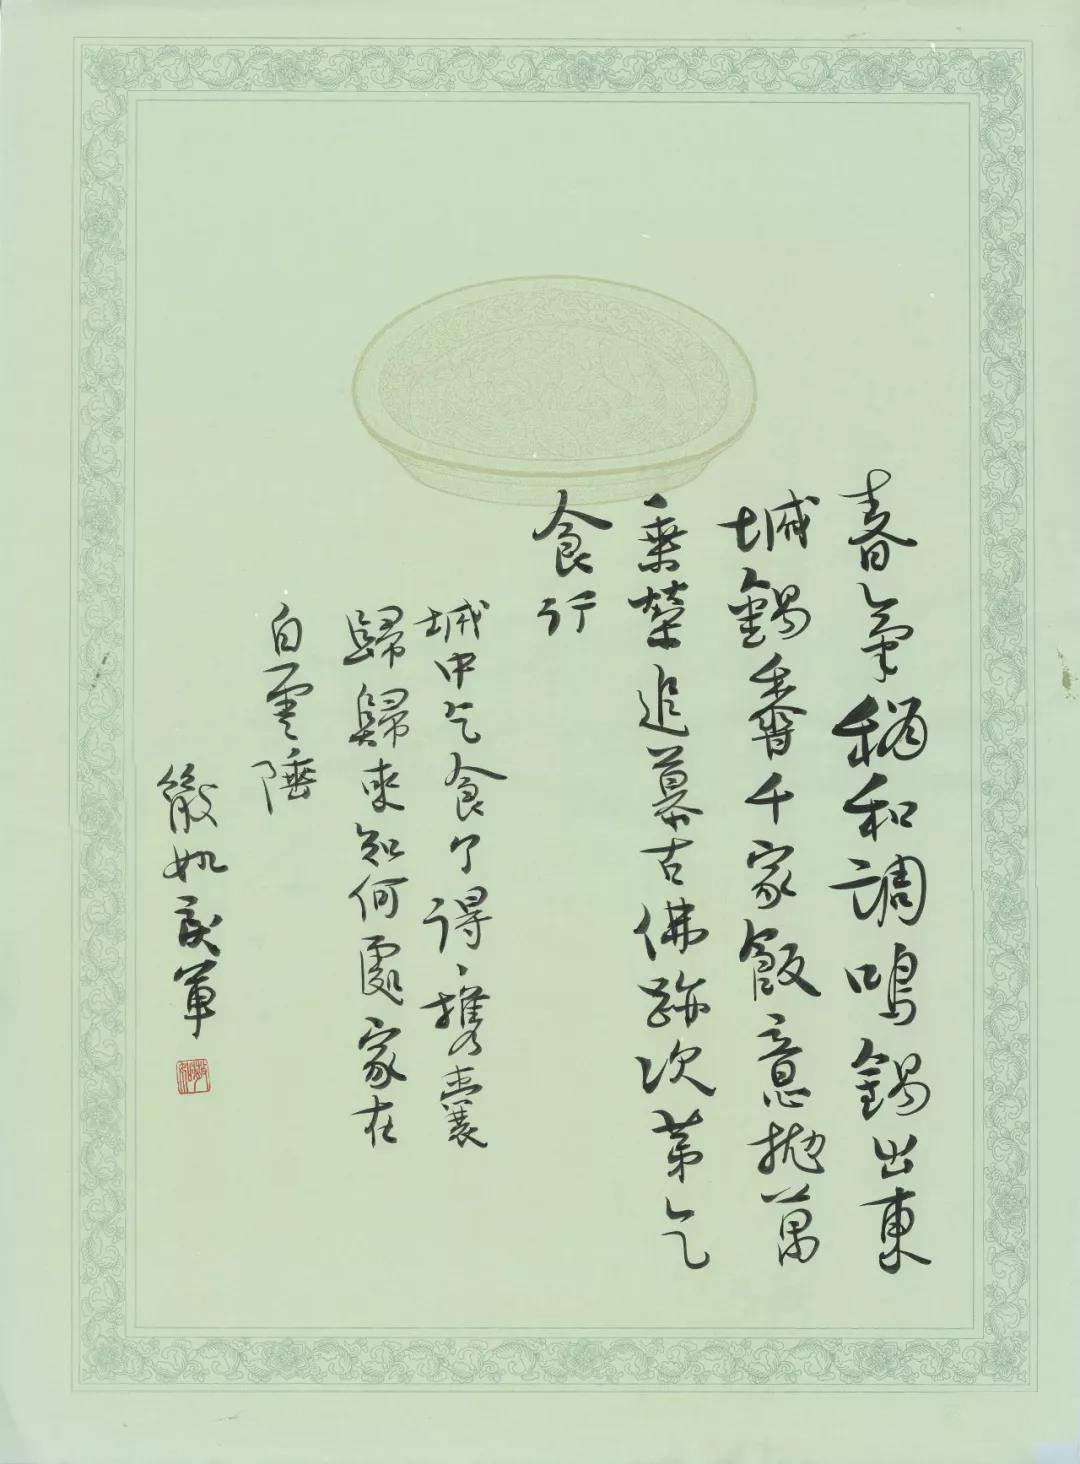 春氣稍和調鳴錫出東
城錫香千家飯意拋萬
乘榮追慕古佛跡次第乞
食行
城中乞食了得、携囊
歸歸來知何處家在
白雲陲
軍